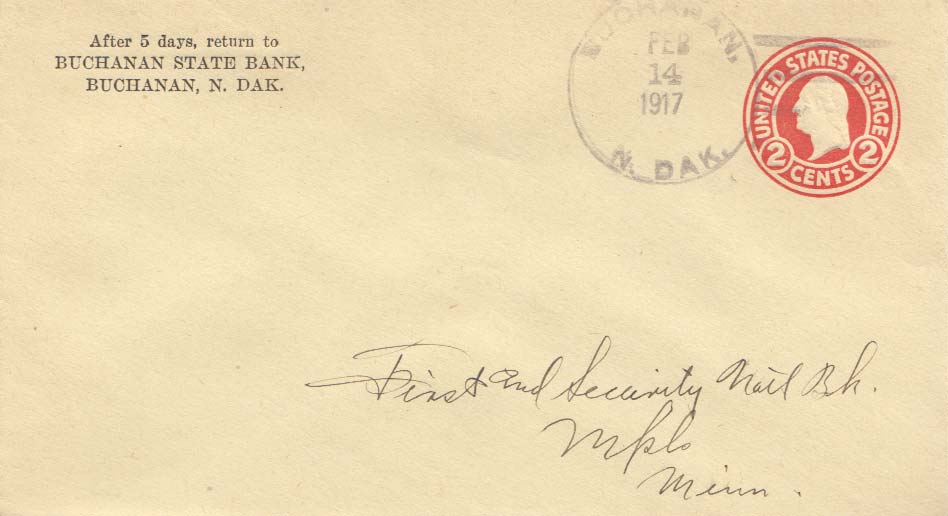 After 5 days, return to
BUCHANAN STATE BANK,
BUCHANAN, N. DAK.
BUCHANAN,
FEB
14
1917
N. DAK.
UNITED STATES POSTAGE
2 CENTS 2
First and Security Natl Bk.
Mpls
Minn.